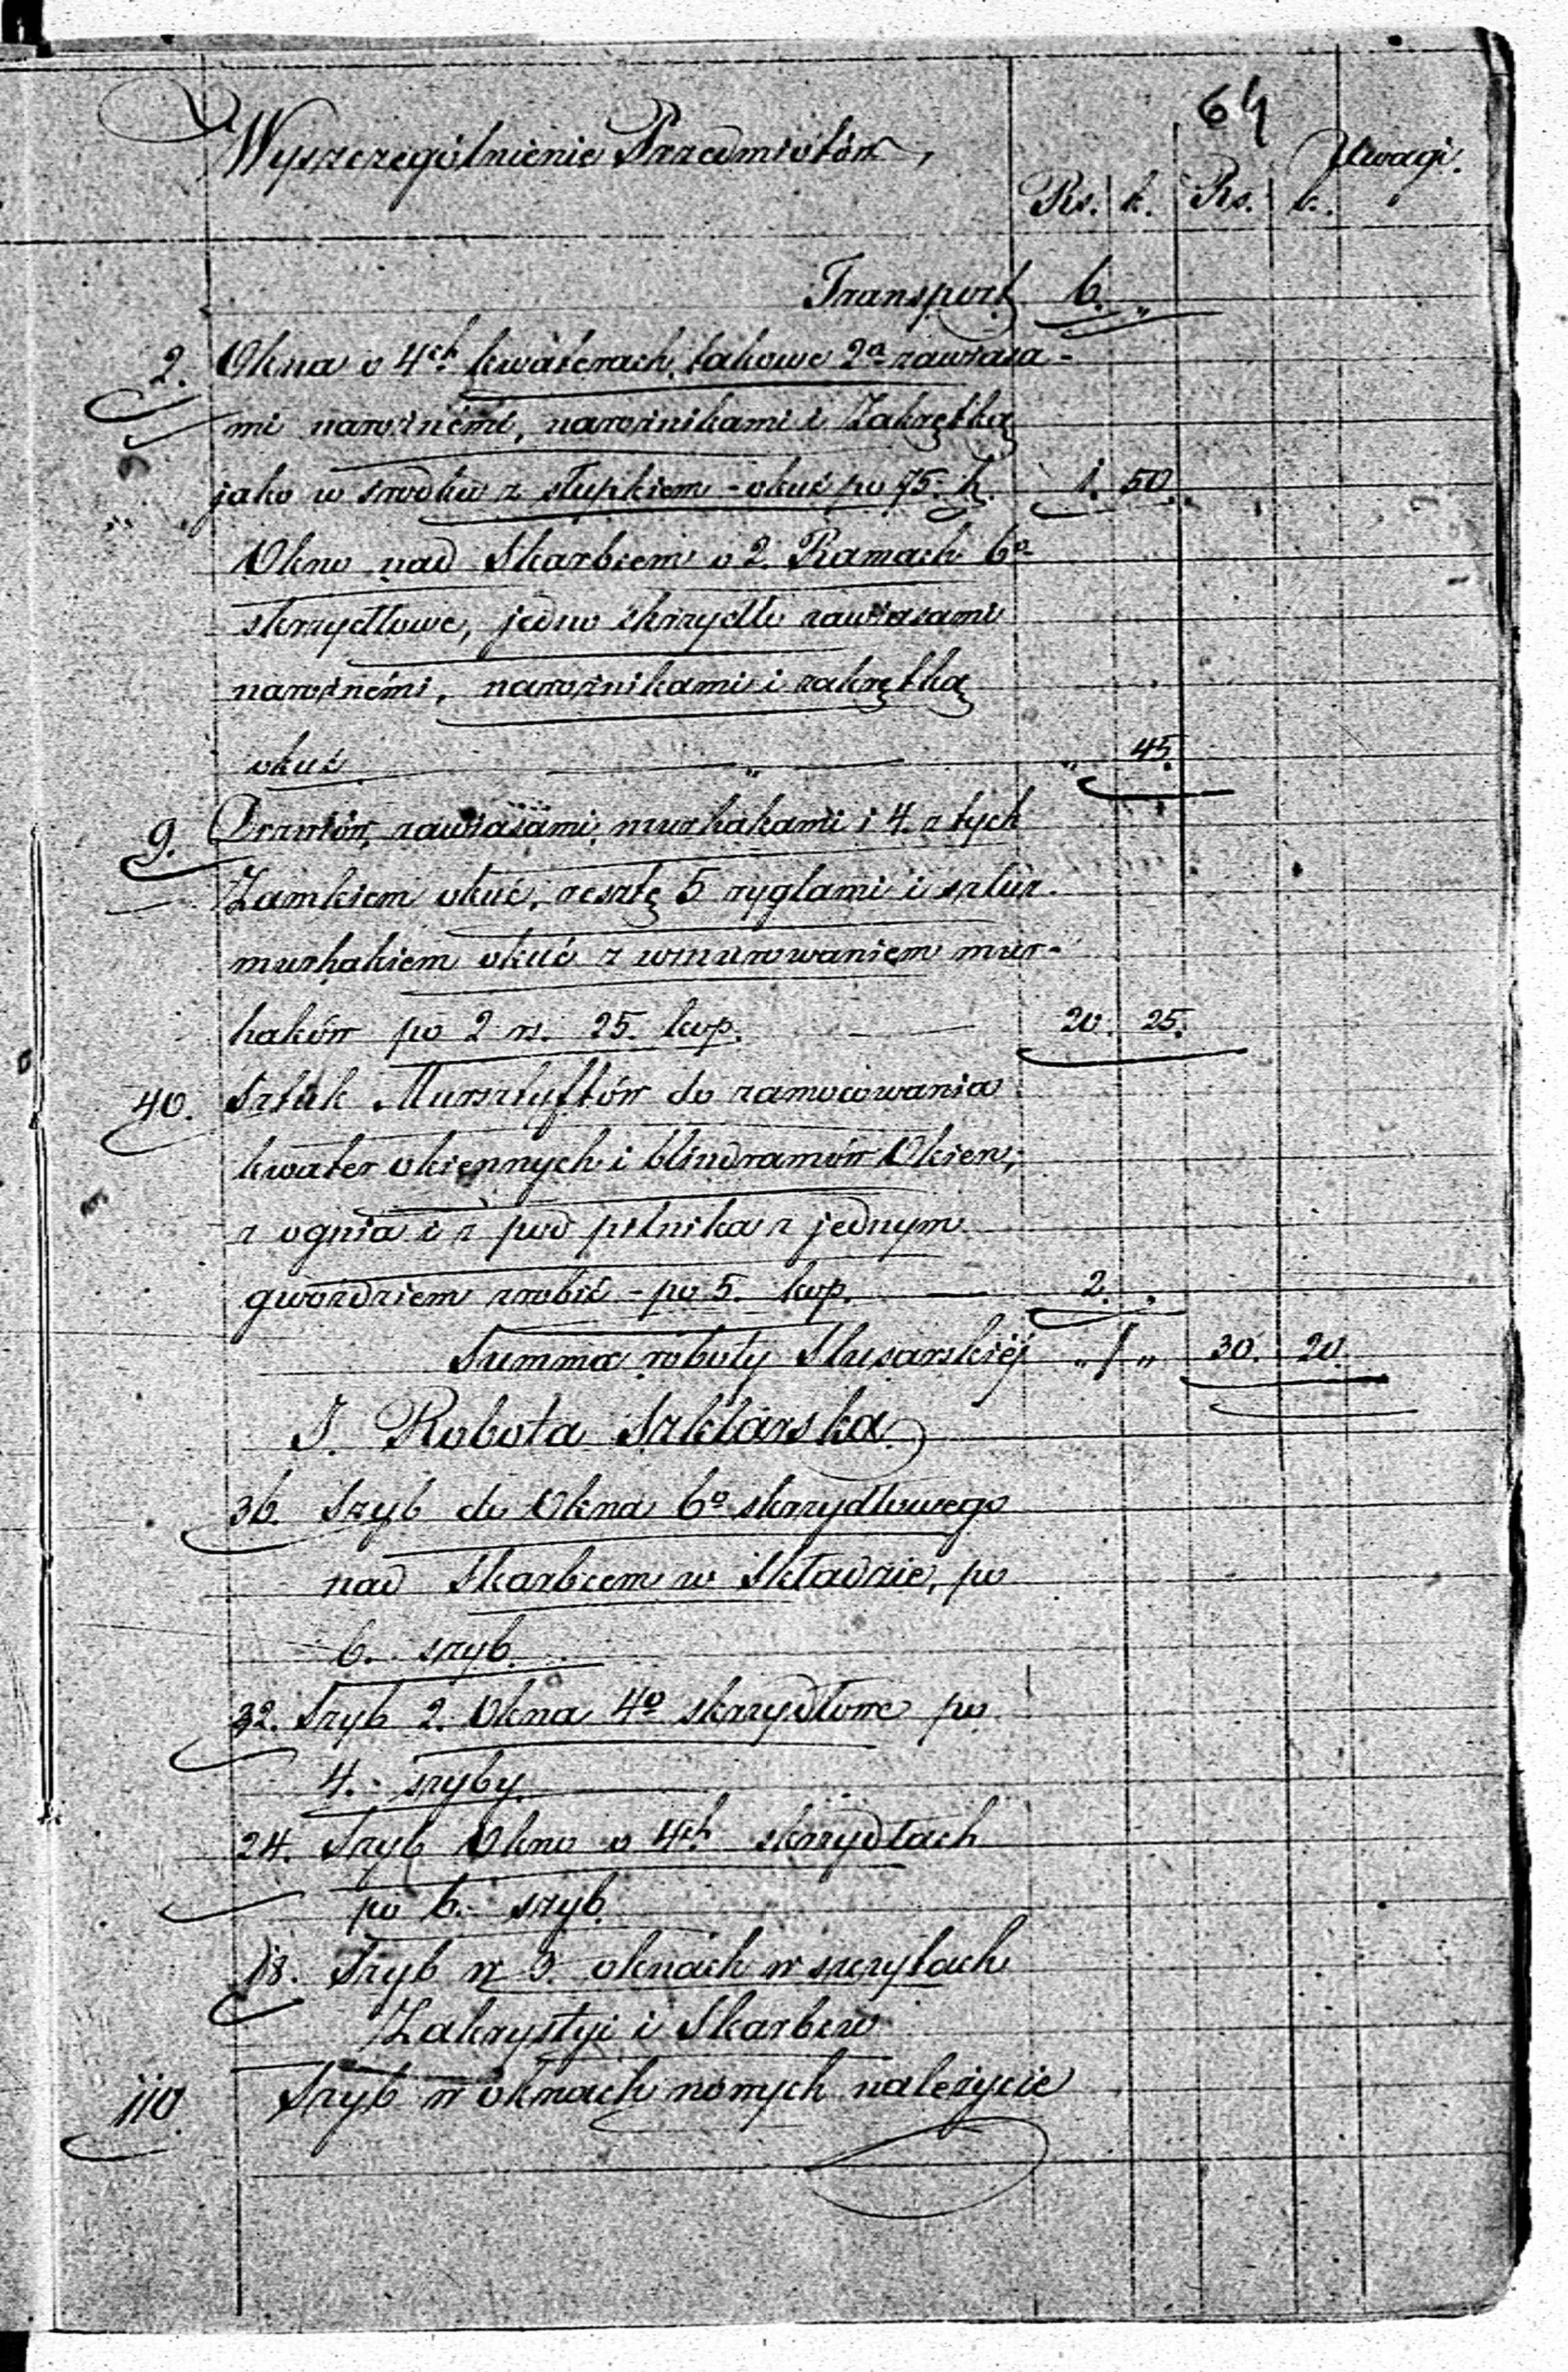 64
Wyszczególnienie Przedmiotów,
Uwagi.
Rs. k. Rs. k.
Transport 6. "
2. Okna o 4ch kwaterach, takowe 2a zawiasa-
mi narożnémi, narożnikami i Zakrętką
jako w środku z słupkiem - okuć po 75. k. 1. 50.
Okno nad Skarbcem o 2. Ramach 6o
skrzydłowe, jedno skrzydło zawiasami
narożnémi, narożnikami i zakrętką
okuć " " 45.
9. Drzwiów, zawiasami, murhakami i 4. z tych
Zamkiem okuć, resztę 5 ryglami i sztur.
murhakiem okuć z wmurowaniem mur-
haków po 2 rs. 25. kop. 20. 25.
40. Sztuk Mursztyftów do zamocowania
kwater okiennych i blindramów Okien,
z ognia i z pod pilnika z jednym
gwoździem zrobić - po 5. kop. 2. "
Summa roboty Slusarskiéj " / " 30. 20.
J. Robota Szklarska
36. Szyb do Okna 6o skrzydłowego
nad Skarbcem w Składzie, po
6. szyb.
32. Szyb 2. Okna 4o skrzydłowe po
4. szyby.
24. Szyb Okno o 4ch skrzydłach
po 6. szyb.
18. Szyb w 3. oknach w szczytach
Zakrystyi i Skarbcu
110 Szyb w oknach nowych należycie